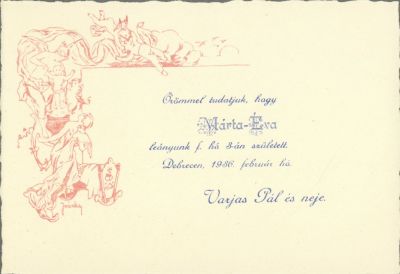 Örömmel tudatjuk, hogy
Márta-Éva
leányunk f. hó 3-án született.
Debrecen, 1936. február hó.
Varjas Pál és neje.